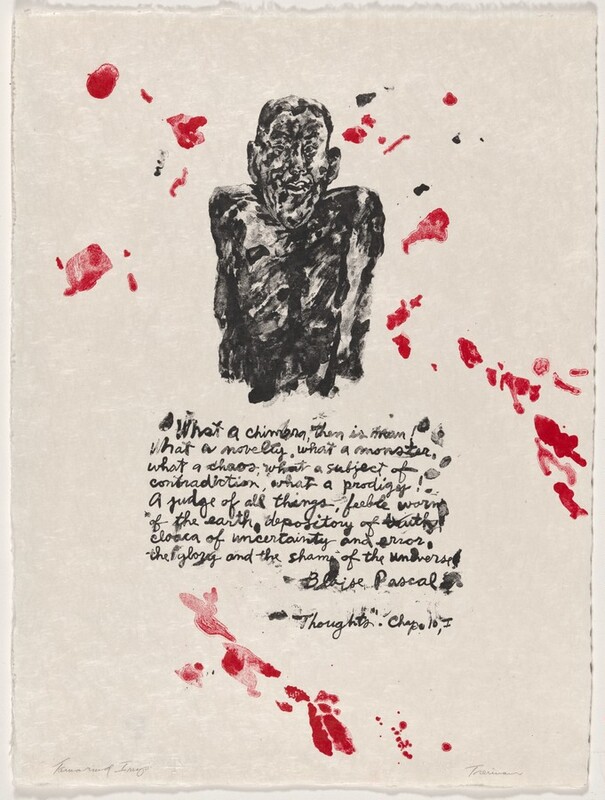 What a chimera, then is man!
What a novelty, what a monster,
what a chaos, what a subject of
contradiction, what a prodigy!
A judge of all things, feeble worm
of the earth, depository of truth,
cloaca of uncertainty and error,
the glory and the shame of the universe
Blaise Pascal
"Thoughts". Chap. 10, I
Tamarind Imp